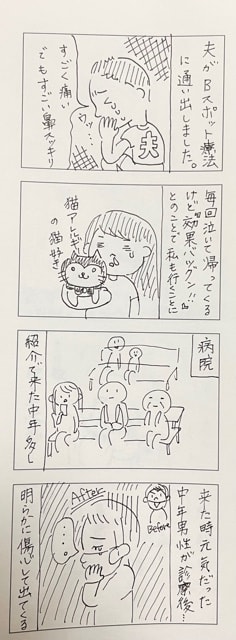 夫がBスポット療法
に通い出しました。
夫
ウッ…
すごく痛い
でもすごい鼻スッキリ
毎回泣いて帰ってくる
けど“効果バツグン!!”
とのことで私も行くことに
猫アレルギー
の猫好き
病院
紹介で来た中年多し
来た時元気だった
中年男性が診療後…
Before
After
…
明らかに傷心して出てくる